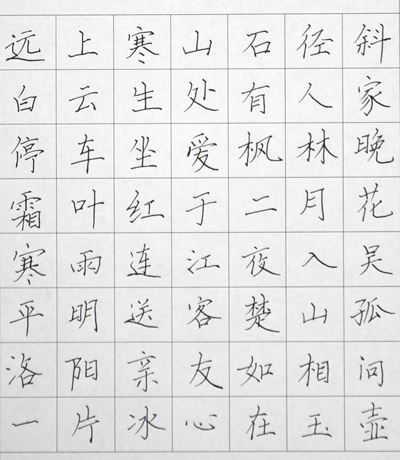 远上寒山石径斜
白云生处有人家
停车坐爱枫林晚
霜叶红于二月花
寒雨连江夜入吴
平明送客楚山孤
洛阳亲友如相问
一片冰心在玉壶